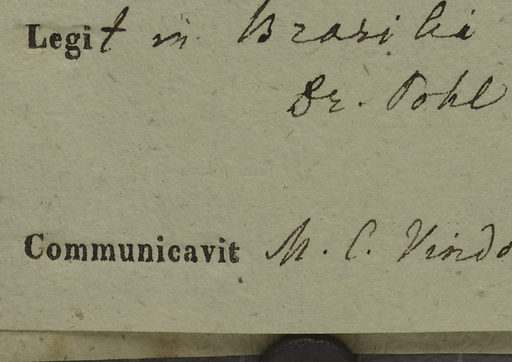 Legit in Brasilia
Dr. Pohl
Communicavit M. C. Vindo